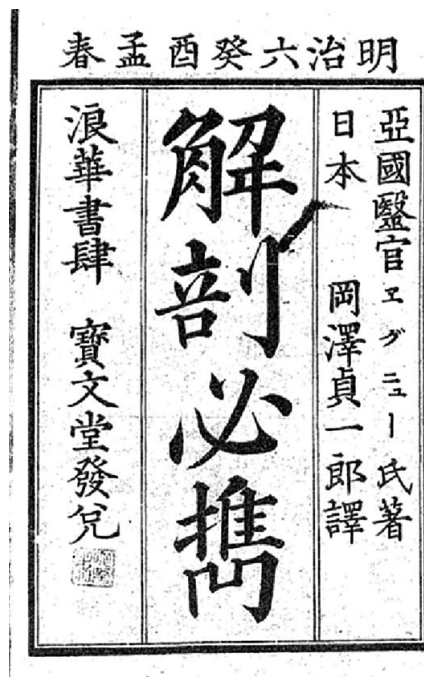 明治六癸酉孟春
亞國醫官ヱグニュー氏著
日本 岡澤貞一郎譯
解剖必携
浪華書肆 寶文堂發兌